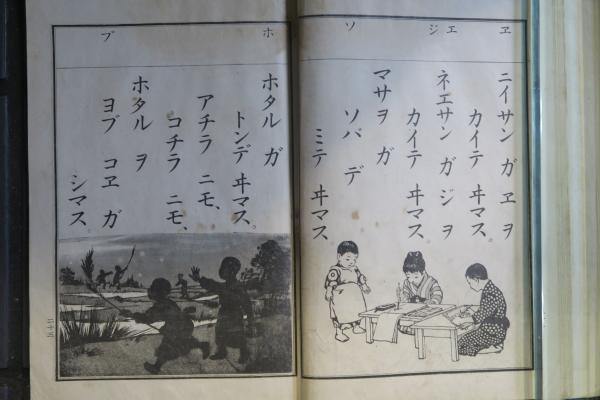 ヱ エ ジ ソ
ニイサン ガ ヱ ヲ
カイテ ヰマス。
ネエサン ガ ジ ヲ
カイテ ヰマス。
マサヲ ガ
ソバ デ
ミテ ヰマス
ホ ブ
ホタル ガ
トンデ ヰマス。
アチラ ニモ、
コチラ ニモ、
ホタル ヲ
ヨブ コヱ ガ
シマス。
二十五